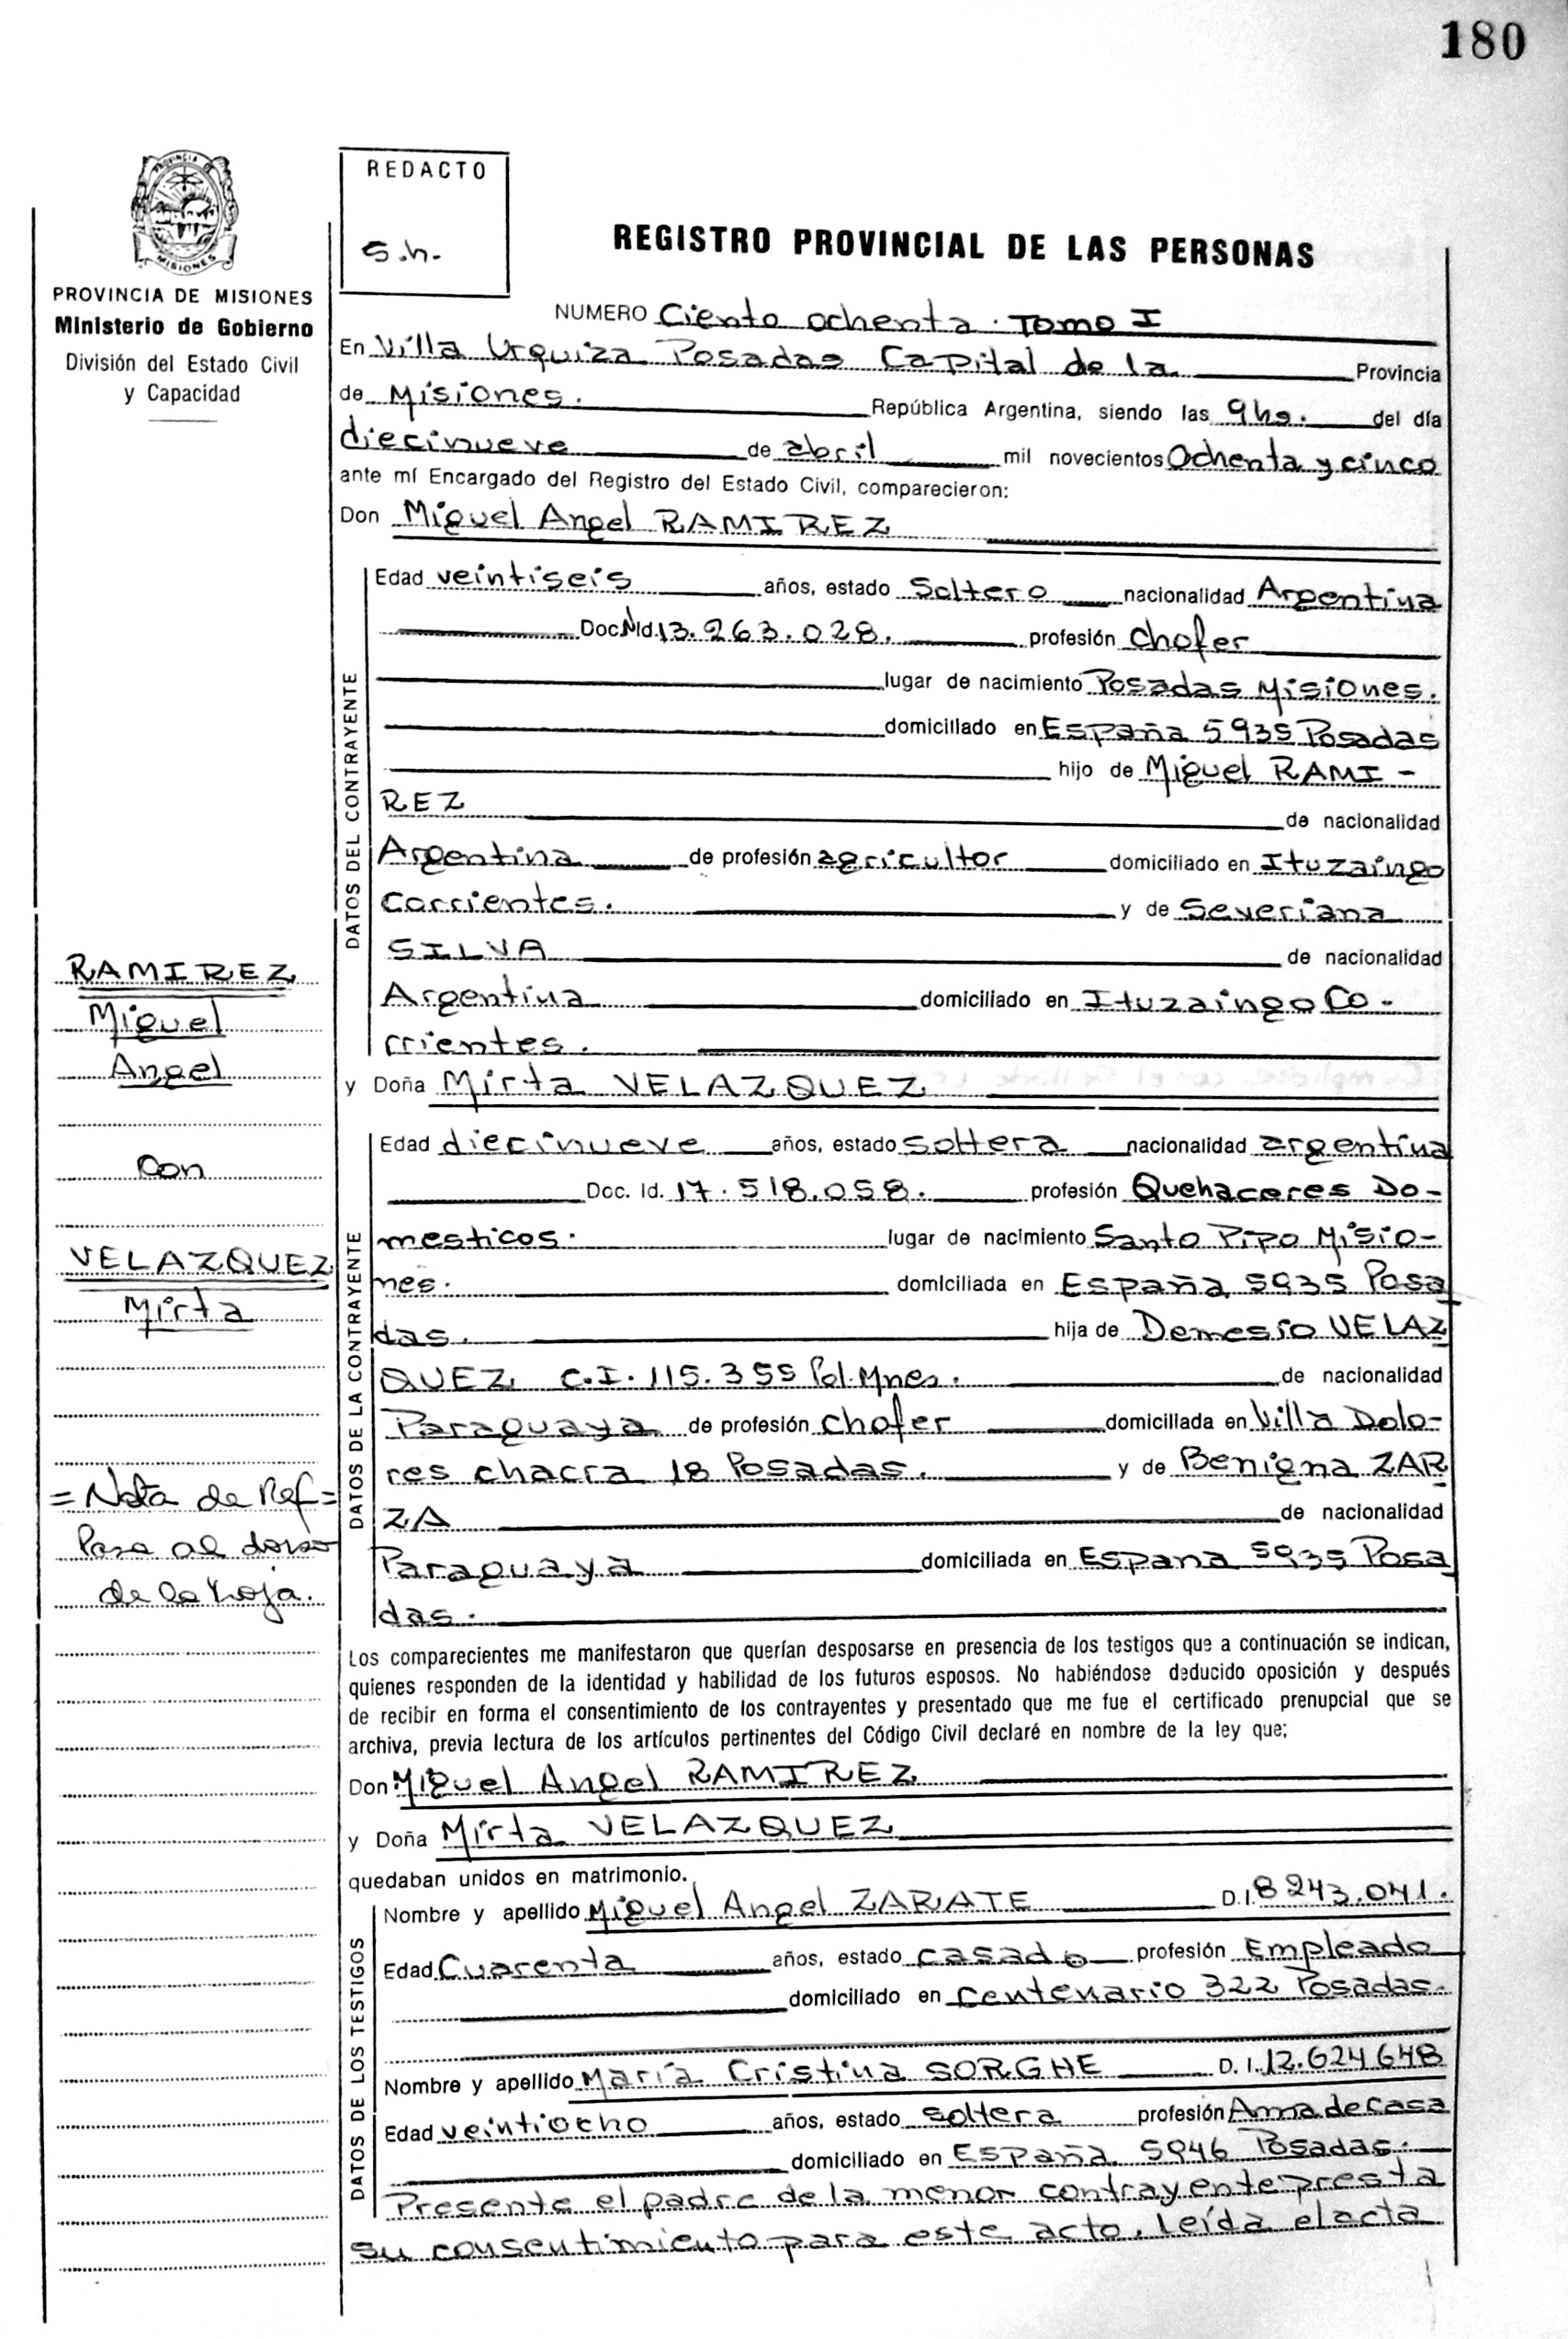 180
REDACTO
S.h.
PROVINCIA
MISIONES
PROVINCIA DE MISIONES
Ministerio de Gobierno
División del Estado Civil
y Capacidad
REGISTRO PROVINCIAL DE LAS PERSONAS
NUMERO Ciento ochenta. Tomo I
En Villa Urquiza Posadas Capital de la Provincia
de Misiones. República Argentina, siendo las 9hs. del día
diecinueve de abril mil novecientos Ochenta y cinco
ante mí Encargado del Registro del Estado Civil, comparecieron:
Don Miguel Angel RAMIREZ
DATOS DEL CONTRAYENTE
Edad veintiseis años, estado Soltero nacionalidad Argentina
Doc. Nid. 13.263.028. profesión chofer
lugar de nacimiento Posadas Misiones.
domiciliado en España 5935 Posadas
hijo de Miguel RAMI-
REZ de nacionalidad
Argentina de profesión agricultor domiciliado en Ituzaingo
Corrientes. y de Severiana
SILVA de nacionalidad
Argentina domiciliado en Ituzaingo Co-
rrientes.
y Doña Mirta VELAZQUEZ
DATOS DE LA CONTRAYENTE
Edad diecinueve años, estado soltera nacionalidad argentina
Doc. Id. 17.518.058. profesión Quehaceres Do-
mesticos. lugar de nacimiento Santo Pipo Misio-
nes. domiciliada en España 5935 Posa
das. hija de Demesio VELAZ
QUEZ C.I. 115.355 Pol. Mnes. de nacionalidad
Paraguaya de profesión chofer domiciliada en Villa Dolo-
res chacra 18 Posadas. y de Benigna ZAR
ZA de nacionalidad
Paraguaya domiciliada en Espana 5935 Posa
das.
RAMIREZ
Miguel
Angel
Con
VELAZQUEZ
Mirta
= Nota de Ref =
Pasa al dorso
de la hoja.
Los comparecientes me manifestaron que querían desposarse en presencia de los testigos que a continuación se indican,
quienes responden de la identidad y habilidad de los futuros esposos. No habiéndose deducido oposición y después
de recibir en forma el consentimiento de los contrayentes y presentado que me fue el certificado prenupcial que se
archiva, previa lectura de los artículos pertinentes del Código Civil declaré en nombre de la ley que;
Don Miguel Angel RAMIREZ
y Doña Mirta VELAZQUEZ
quedaban unidos en matrimonio.
DATOS DE LOS TESTIGOS
Nombre y apellido Miguel Angel ZARATE D.I. 8243.041.
Edad Cuarenta años, estado casado profesión Empleado
domiciliado en Centenario 322 Posadas.
Nombre y apellido María Cristina SORGHE D.I. 12.624648
Edad veintiocho años, estado soltera profesión Ama de Casa
domiciliado en España 5946 Posadas.
Presente el padre de la menor contrayente presta
su consentimiento para este acto. Leída el acta